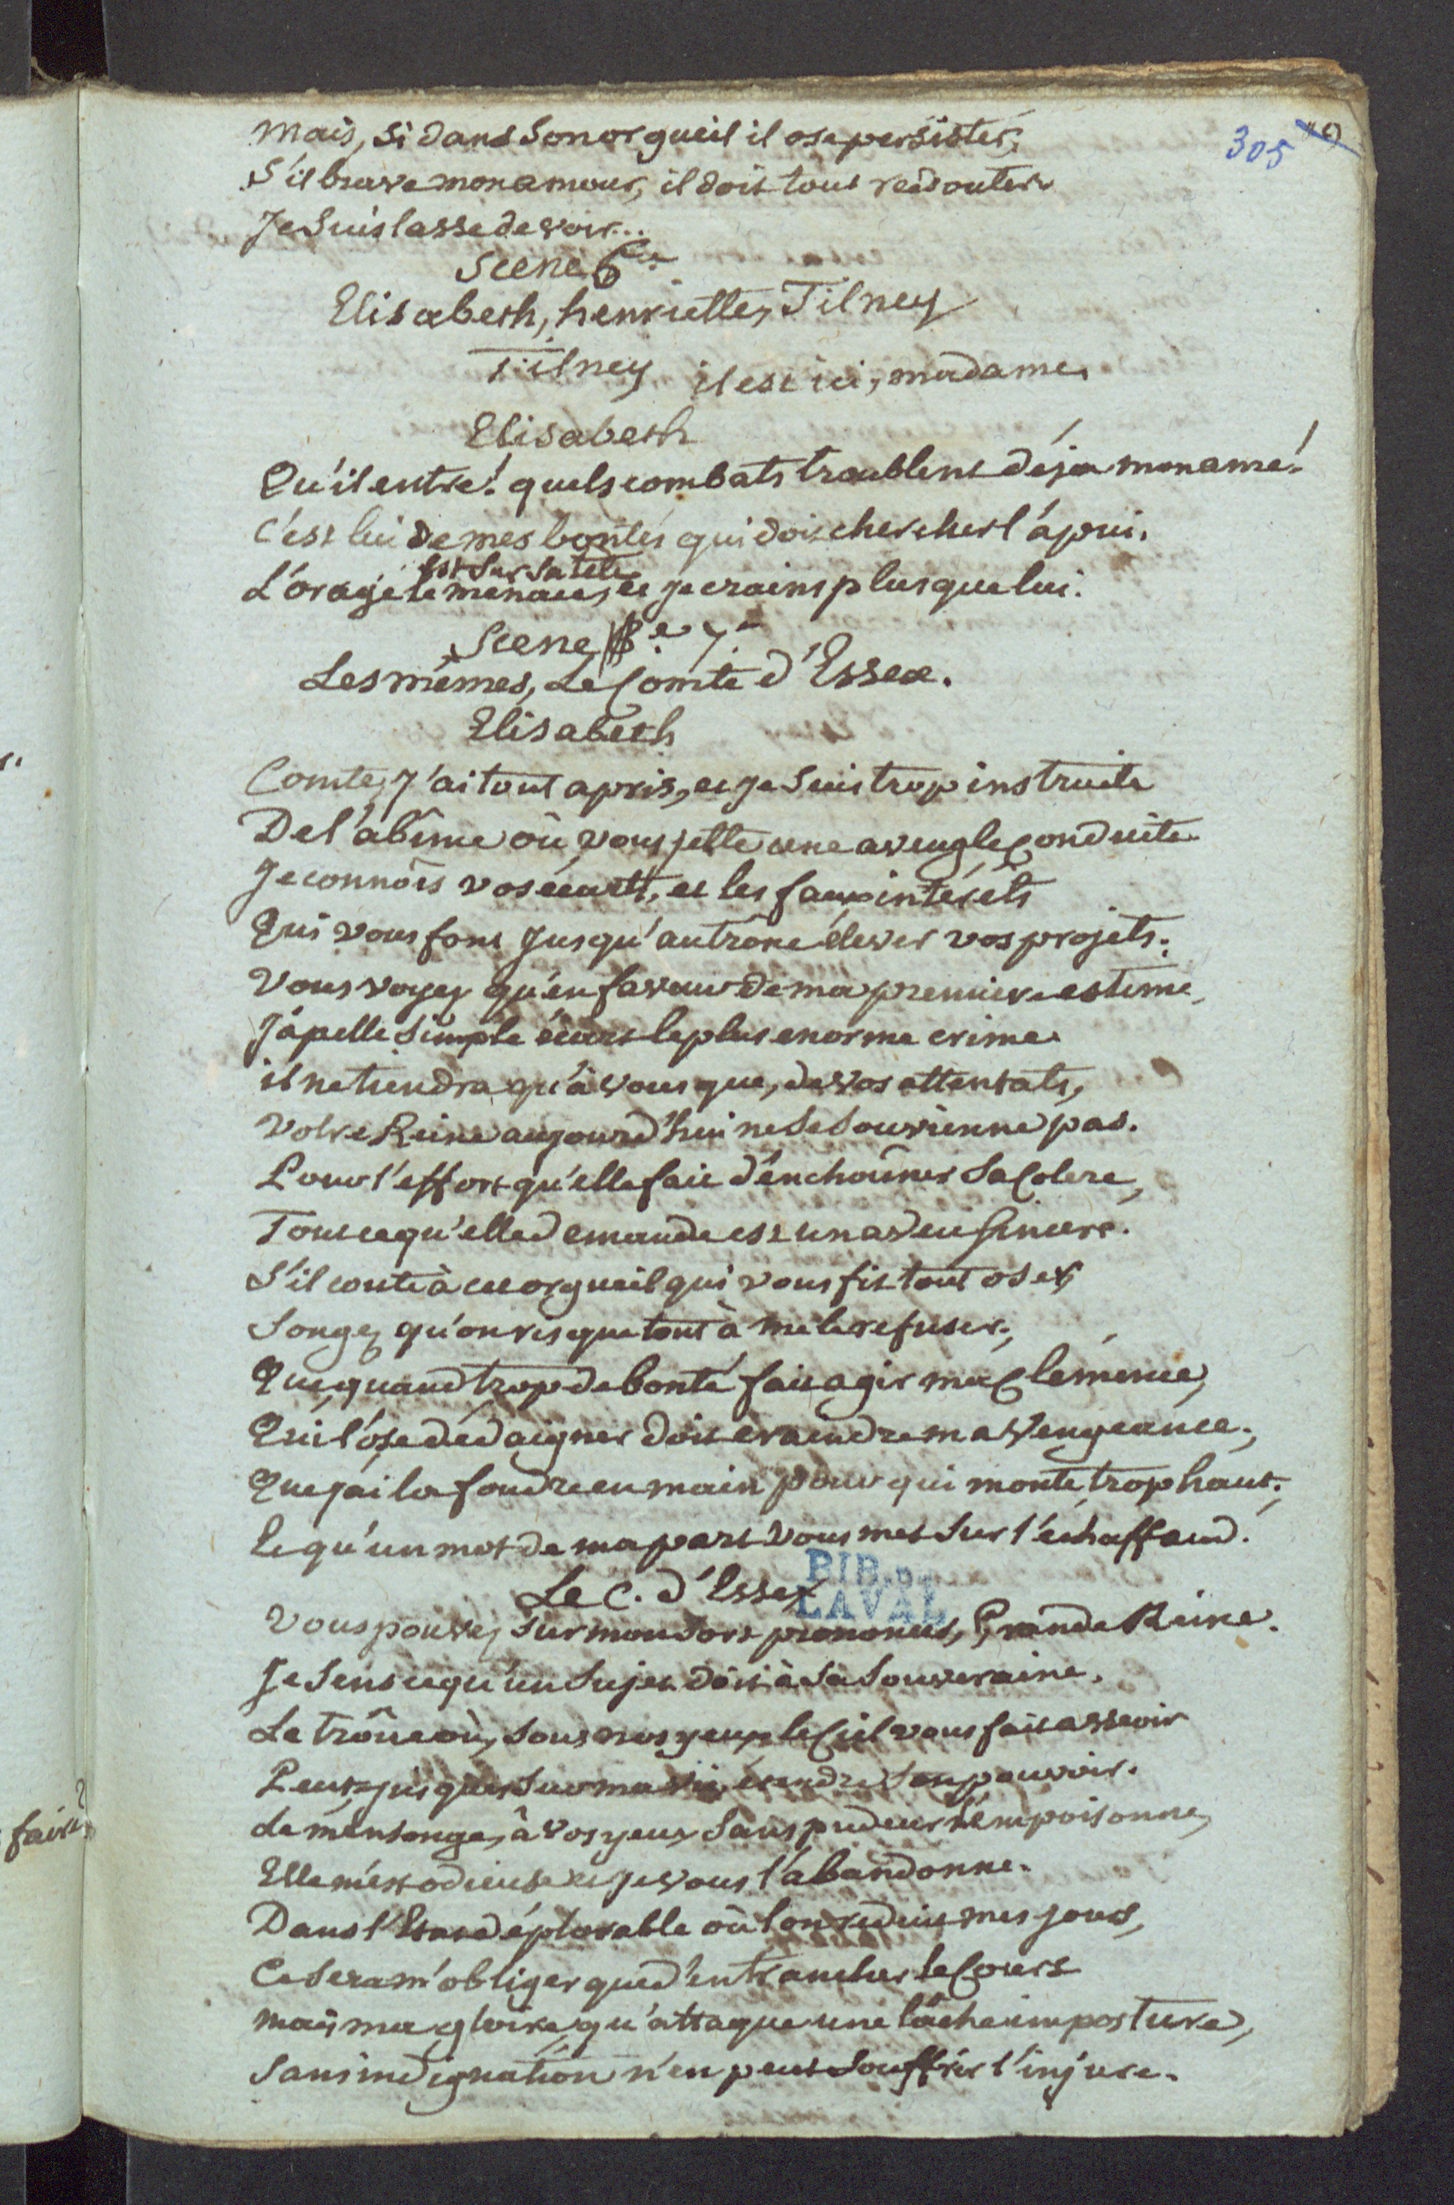 305
mais, si dans son orgueil il ose persister,
S'il brave mon amour, il doit tout redouter
Je suis lasse de voir...
Scene 6.e
Elisabeth, henriette, Tilney
Tilney il est ici, madame.
Elisabeth
Qu'il entre! quels combats troublent déja mon ame!
C'est lui de mes bontés qui doit chercher l'apui.
est sur sa tete
L'orage le menace, et je crains plus que lui.
Scene 7.e
Les mêmes, Le Comte d'Essex.
Elisabeth
Comte, j'ai tout apris, et je suis trop instruite
De l'abîme où vous jette une aveugle conduite
Je connôis vos écarts, et les faux intérêts
Qui vous font jusqu'au trône élever vos projets.
Vous voyez qu'en faveur de ma premiere estime,
J'apelle simple écart le plus enorme crime
il ne tiendra qu'à vous que, de vos attentats,
Votre Reine aujourd'hui ne se souvienne pas.
Pour l'effort qu'elle fait d'enchaîner sa Colere,
Tout ce qu'elle demande est un aveu sincere.
S'il coute à cet orgueil qui vous fit tout oser
Songez qu'on risque tout à me le refuser;
Que, quand trop de bonté fait agir ma Clémence,
Qui l'ose dédaigner doit craindre ma vengeance;
Que j'ai la foudre en main pour qui monte trop haut;
Et qu'un mot de ma part vous met sur l'échaffaud.
BIB. D
LAVAL
Le C. d'Essex
Vous pouvez sur mon sort prononcer, Grande Reine.
Je sens ce qu'un sujet doit à sa souveraine.
Le trône où, sous nos yeux le Ciel vous fait asseoir
Peut jusques sur ma vie étendre son pouvoir.
Le mensonge, à vos yeux sans pudeur l'empoisonne,
Elle m'est odieuse et je vous l'abandonne.
Dans l'Etat déplorable où l'on reduit mes jours,
Ce sera m'obliger que d'en trancher le Cours
mais ma gloire, qu'attaque une lâche imposture,
Sans indignation n'en peut souffrir l'injure.
faire